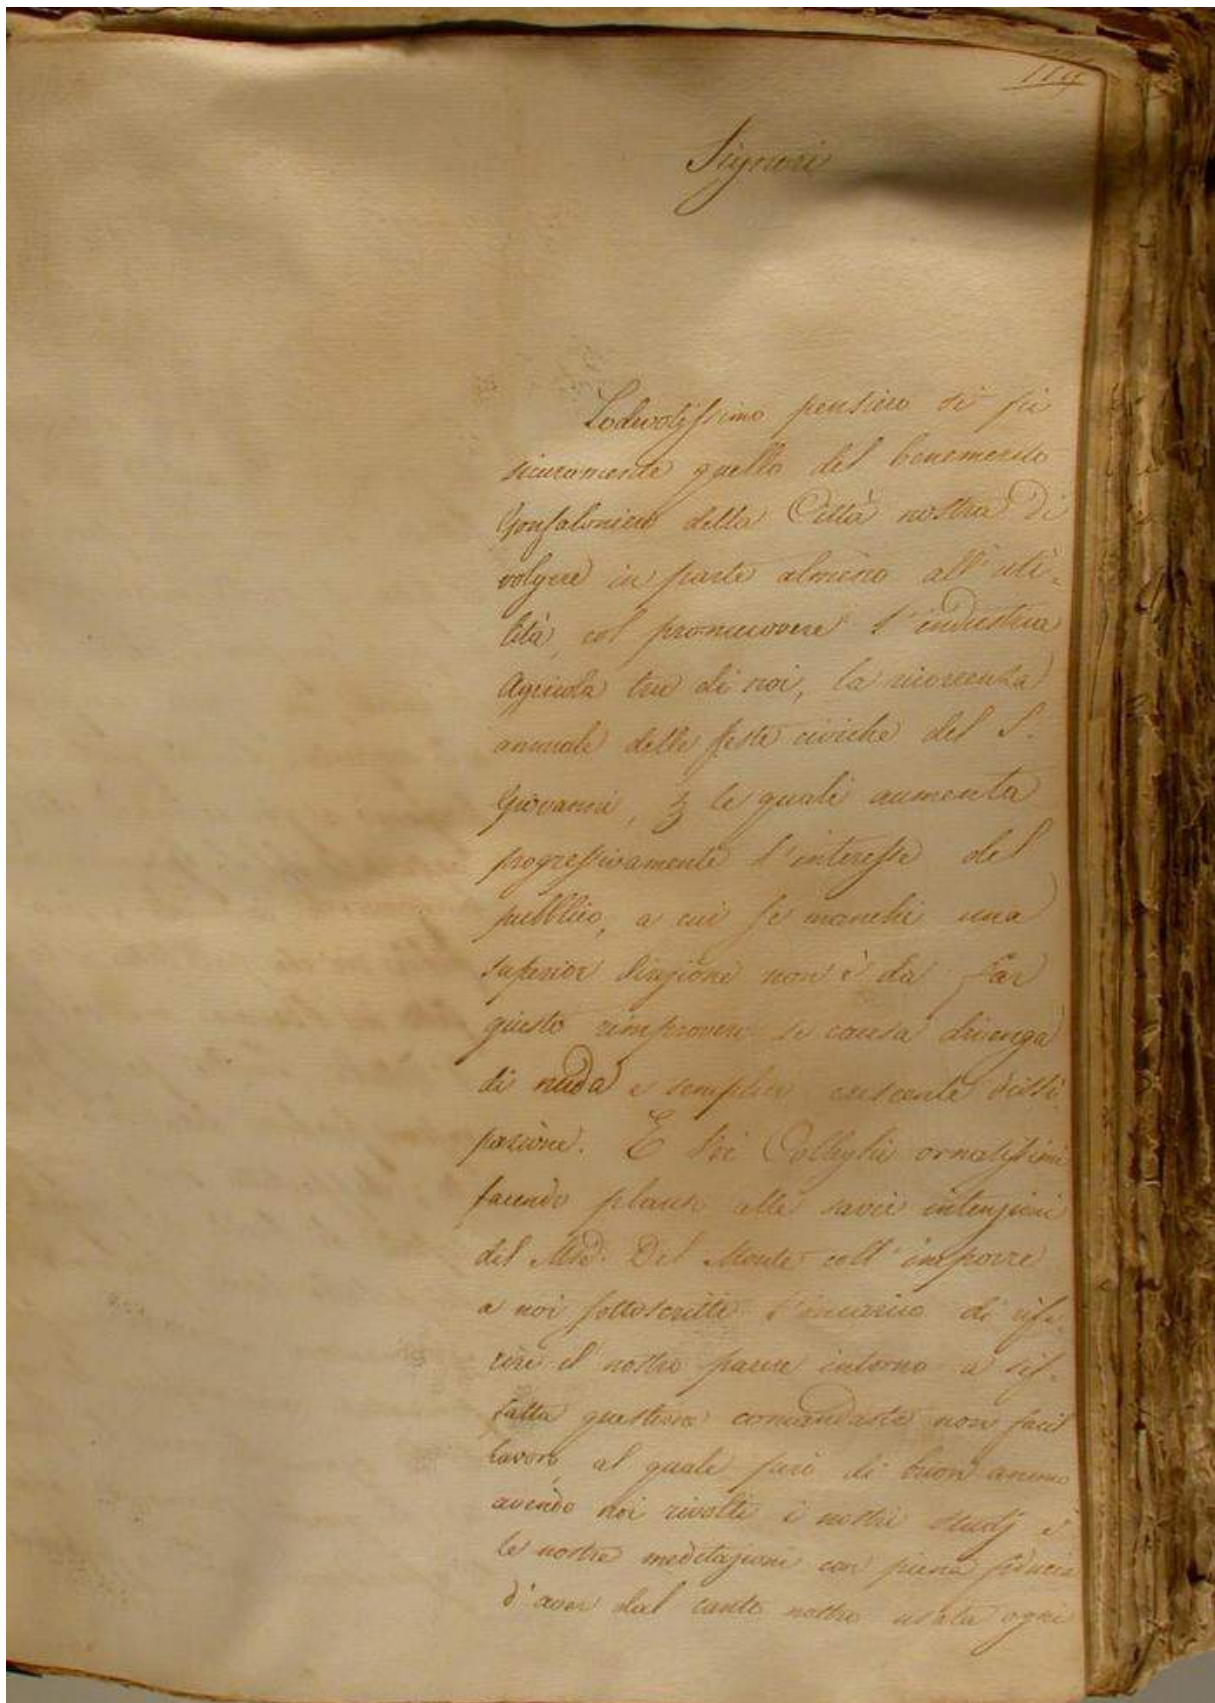 119
Signori
Lodevolissimo pensiero si fu
sicuramente quello del benemerito
Gonfaloniere della Città nostra di
volgere in parte almeno all'uti=
lità, col promuovere l'industria
Agricola tra di noi, la ricorrenza
annuale delle feste civiche del S.
Giovanni, le quali aumenta
progressivamente l'interesse del
pubblico, a cui se manchi una
superior direzione non è da far
giusto rimprovero se causa divenga
di nuda e semplice crescente dissi
pazione. E Voi Colleghi ornatissimi
facendo plauso alle savie intenzioni
del Del Monte coll'imporre
a noi sottoscritti l'incarico di rife-
rire il nostro parere intorno a sif-
fatta questione comandaste non facil
lavoro, al quale però di buon animo
avendo noi rivolti i nostri studj e
le nostre meditazioni con piena fiducia
d'aver dal canto nostro usata ogni